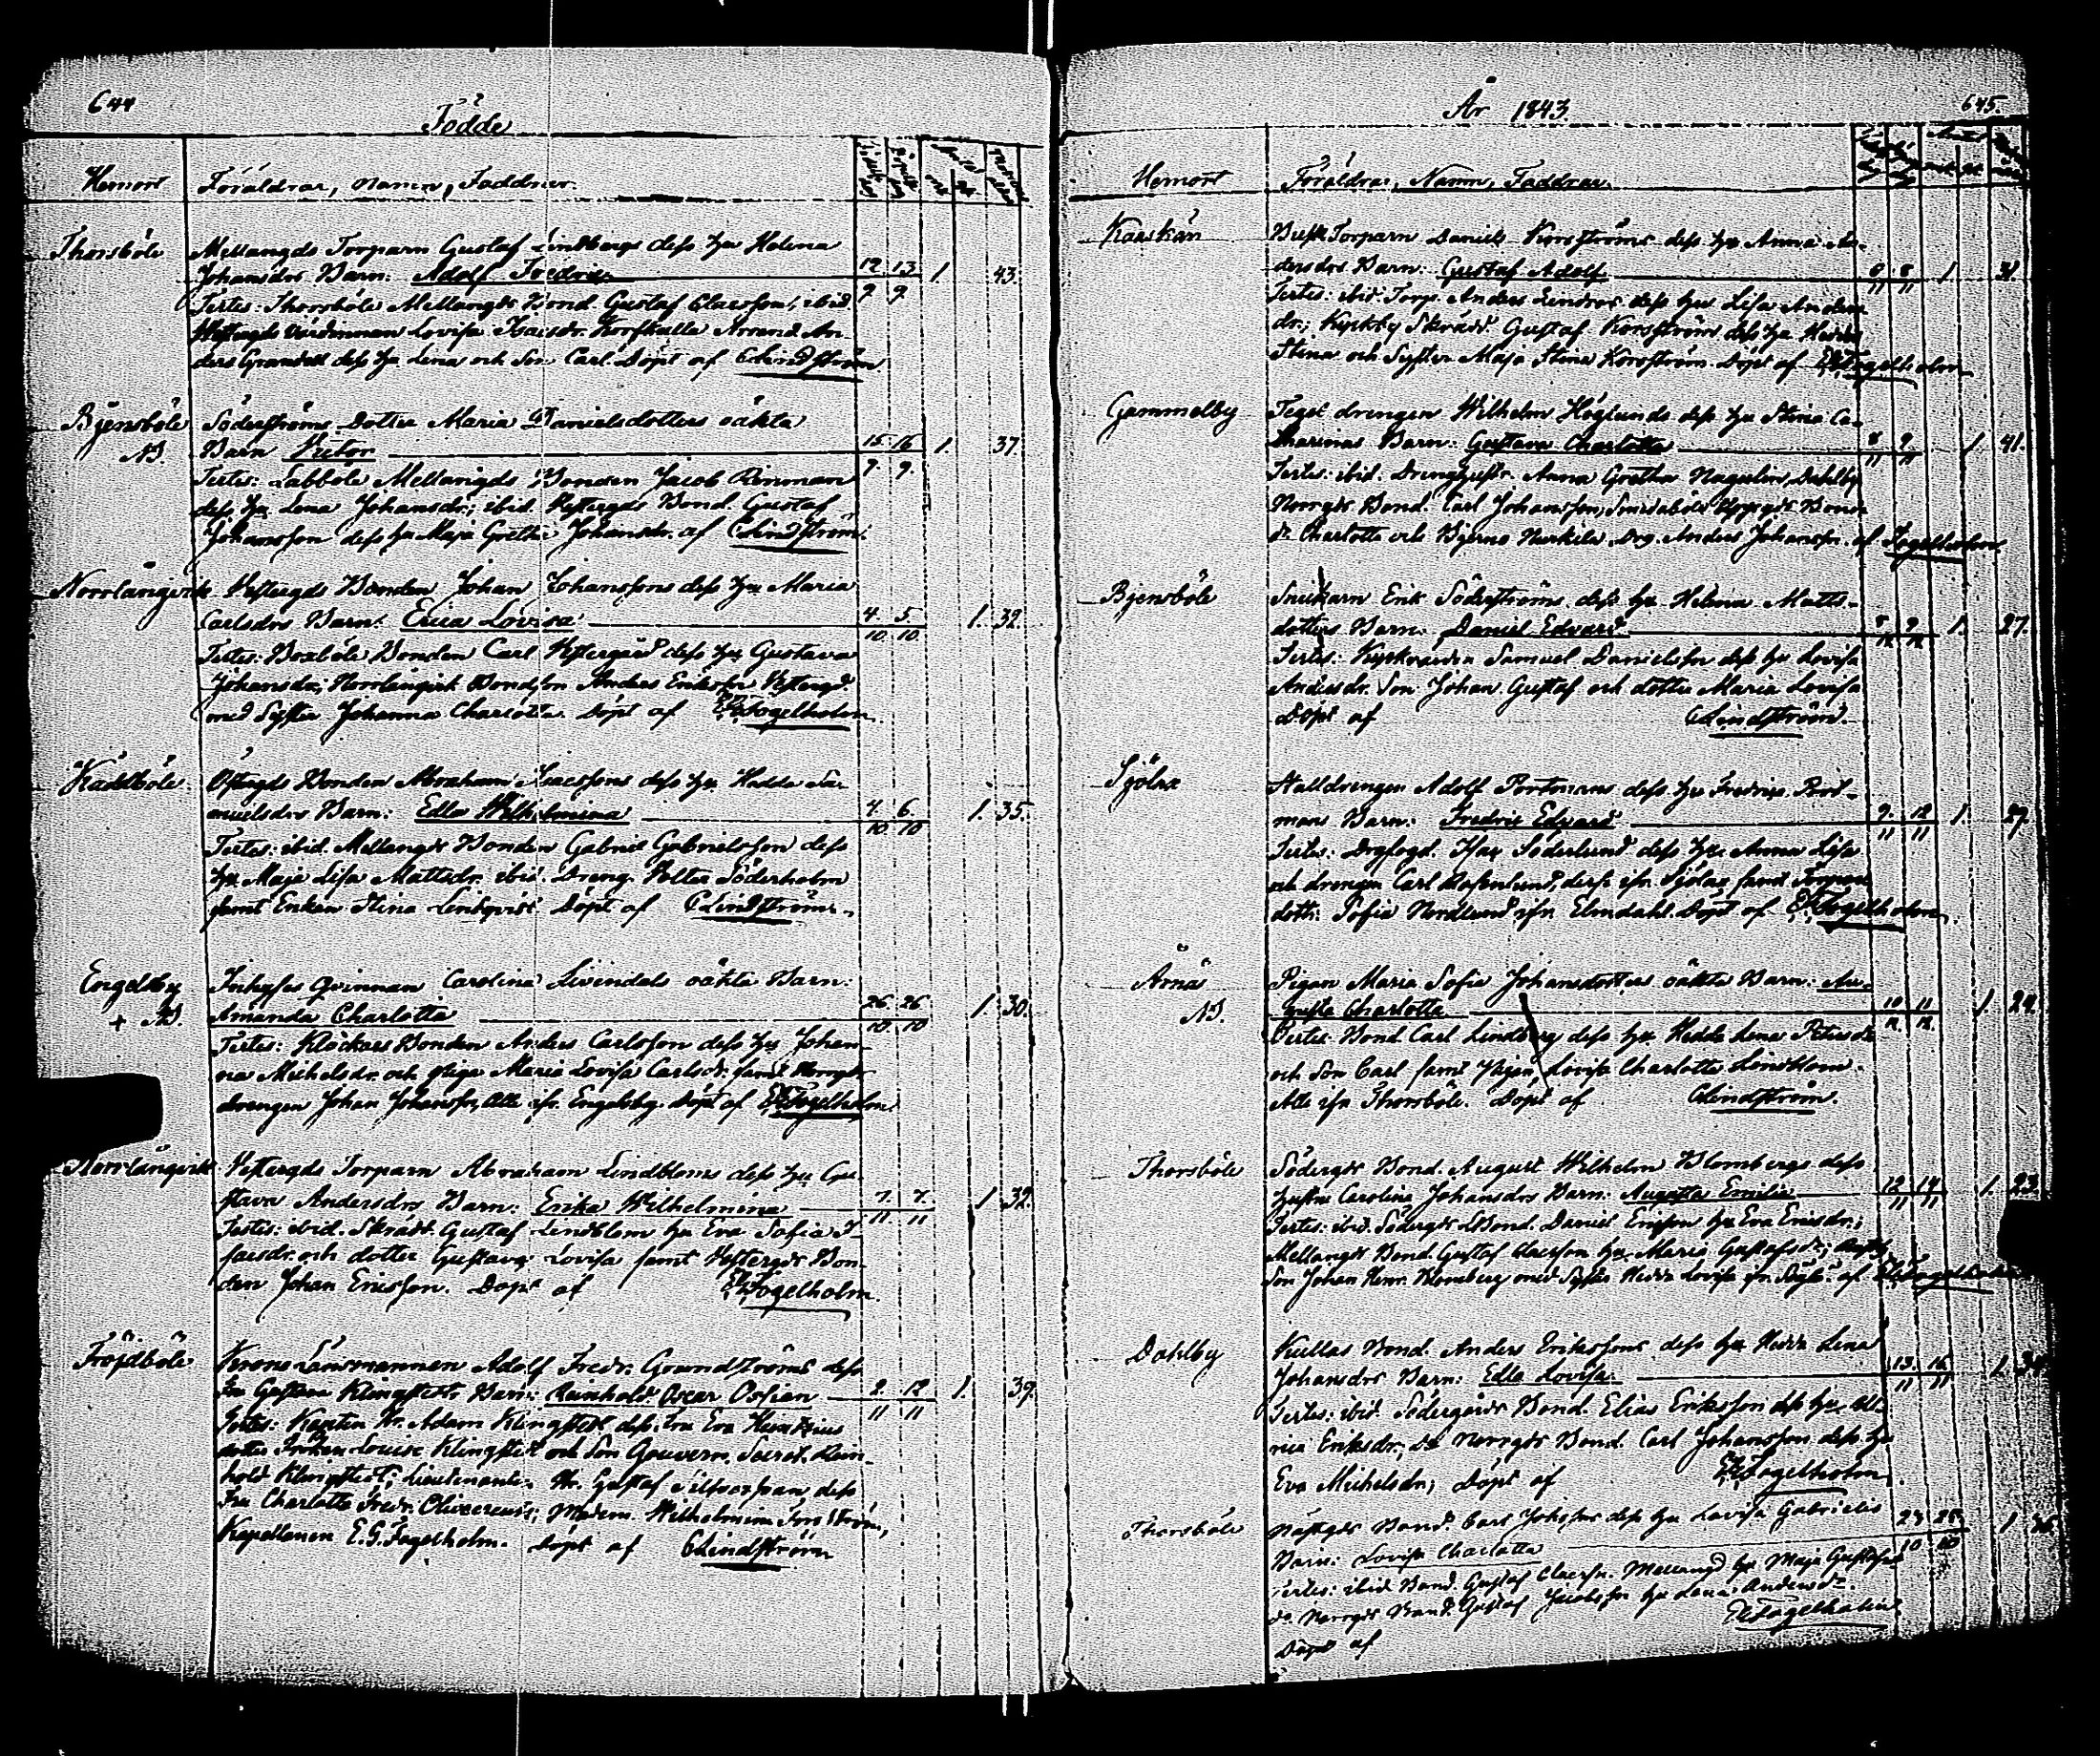 644
Födde
Hemort Föräldrar, namn, Faddrar.
Thorsböle Mellangds Torparn Gustaf Lindbergs dess hu Helena
Johansdrs Barn: Adolf Fredric 12 13 1. 43.
9. 9.
Testes: Thorsböle Mellangds Bond. Gustaf Claesson, ibid.
Lovisa Isacsdr. Arrend. An-
ders Granvall dess hu Lena och Son Carl. Döpt af CLindström
Bjensböle Söderströms Dotter Maria Danielsdotters oäkta
Barn Victor 15 16 1. 37.
9. 9.
Testes: Labböle Mellangds Bonden Jacob Rinman
dess hu Lena Johansdr; ibid. Westergds Bond. Gustaf
Johansson dess hu Maja Gretha Johansdr. af CLindström.
Norrlångvik Westergds Bonden Johan Johanssons dess hu Maria
Carlsdrs Barn: Erica Lovisa 4. 5. 1. 32.
10. 10.
Testes: Boxböle Bonden Carl Westergård dess hu Gustava
Johansdr; Norrlångvik Bondson Anders Ericsson Westergd.
med Syster Johanna Charlotta. Döpt af EGFogelholm.
Östergds Bonden Abraham Isacssons dess hu Hedda Sa-
muelsdrs Barn: Edla Wilhelmina 4. 6. 1. 35.
10 10
Testes: ibid. Mellangds Bonden Gabriel Gabrielsson dess
hu Maja Lisa Mattsdr. ibid. Dreng. Wolter Söderholm
samt Enkan Stina Lindqvist. Döpt af CLindström.
Engelsby Inhyses Qvinnan Carolina Livendals oäkta Barn:
Amanda Charlotta 26 26 1. 30.
10. 10
Testes: Klockars Bonden Anders Carlsson dess hu Johan-
na Michelsdr. och Piga Maria Lovisa Carlsdr. samt Norrgds
drengen Johan Johansson, Alle ifr. Engelsby. Döpt af EGFogelholm.
Norrlångvik Westergds Torparn Abraham Lindbloms dess hu Gu-
stava Andersdrs Barn: Erika Wilhelmina 7. 7. 1. 32.
11. 11
Testes: ibid. Skrädd. Gustaf Lindblom hu Eva Sofia I-
sacsdr. och dotter Gustava Lovisa samt Westergds Bon-
den Johan Ericsson. Döpt af EGFogelholm.
Fröjdböle Krono Länsmannen Adolf Fredr. Grundströms dess
Fru Gustava Klingstedts Barn: Reinhold Oscar Ossian 2. 12 1. 39.
11 11
Testes: Kaptin Hr. Adam Klingstedt dess Fru Eva
dotter Fröken Louise Klingstedt och Son Gouvern. Secret. Rein-
hold Klingstedt; Lieutnanten Hr. Gustaf dess
Fru Charlotta Fredr. Mademl. Wilhelmina Forsström,
Kapellanen E.G. Fogelholm. Döpt af CLindström
År 1843. 645.
Hemort Föräldrar, Namn, Faddrar.
Torparn Daniel Korsströms dess hu Anna An-
dersdrs Barn: Gustaf Adolf 6 8 1 31
11 11
Testes: ibid. Torp. Anders Lindros dess hu Lisa Anders-
dr.; Kyrkby Skrädd. Gustaf Korsström dess hu Hedda
Stina och Syster Maja Stina Korsström. Döpt af EGFogelholm
Gammelby drengen Wilhelm Höglunds dess hu Stina Ca-
tharinas Barn: Gustava Charlotta 8 9. 1. 41.
11 11
Testes: ibid. Anna Gretha Dahlby
Norrgds Bond. Carl Johansson, Bond-
dr Charlotta och Bjerno Drg. Anders Johansson. af Fogelholm
Bjensböle Snickarn Erik Söderströms dess hu Helena Matts-
dotters Barn: Daniel Edvard 8 9. 1. 27.
12 12
Testes: Kyrkvärden Samuel Danielsson dess hu Lovisa
Andersdr. Son Johan Gustaf och dotter Maria Lovisa
Döpt af CLindström.
Sjölax Stalldrengen Adolf Portmans dess hu Fredrica Port-
mans Barn: Fredric Edvard 9. 12 1. 27.
11 11
Testes: Drgfogd. Isac Söderlund dess hu Anna Lisa
och drengen Carl Rosenlund, ifr. Sjölax samt
dottr. Sofia Nordlund ifr. Elmdahl. Döpt af EGFogelholm.
Årnäs Pigan Maria Sofia Johansdotters oäkta Barn: Au-
gusta Charlotta 10 11 1. 24.
12. 12.
Testes: Bond. Carl Lindberg dess hu Hedda Lena Petersdr
och Son Carl samt Pigan Lovisa Charlotta Lindblom.
Alle ifr Thorsböle. Döpt af CLindström.
Thorsböle Södergds Bond. August Wilhelm Blombergs dess
hustru Carolina Johansdrs Barn: Augusta Emilia 12 14 1. 23.
11 11
Testes: ibid. Södergds Bond. Daniel Ericsson hu Eva Ericsdr;
Mellangds Bond. Gustaf Claesson hu Maria Gustafsdr;
Son Johan Henr. Blomberg med Syster Hedda Lovisa
Dahlby Kullas Bond. Anders Erikssons dess hu Hedda Lena
Johansdrs Barn: Edla Lovisa 13. 16 1.
11 11
Testes: ibid. Södergårds Bond. Elias Eriksson dess hu Ul-
rica Eriksdr; do Norrgds Bond. Carl Johansson dess hu
Eva Michelsdr; Döpt af EGFogelholm
Thorsböle Bond. Carl dess hu Lovisa Gabrielis
Barn: Lovisa Charlotta 23 25 1
10 10
Testes: ibid. Bond. Gustaf Claesson. Mellangd hu Maja Gustafsdr
do Norrgds Bond. Gustaf Jacobsson hu Lena Andersdr.
Döpt af EGFogelholm